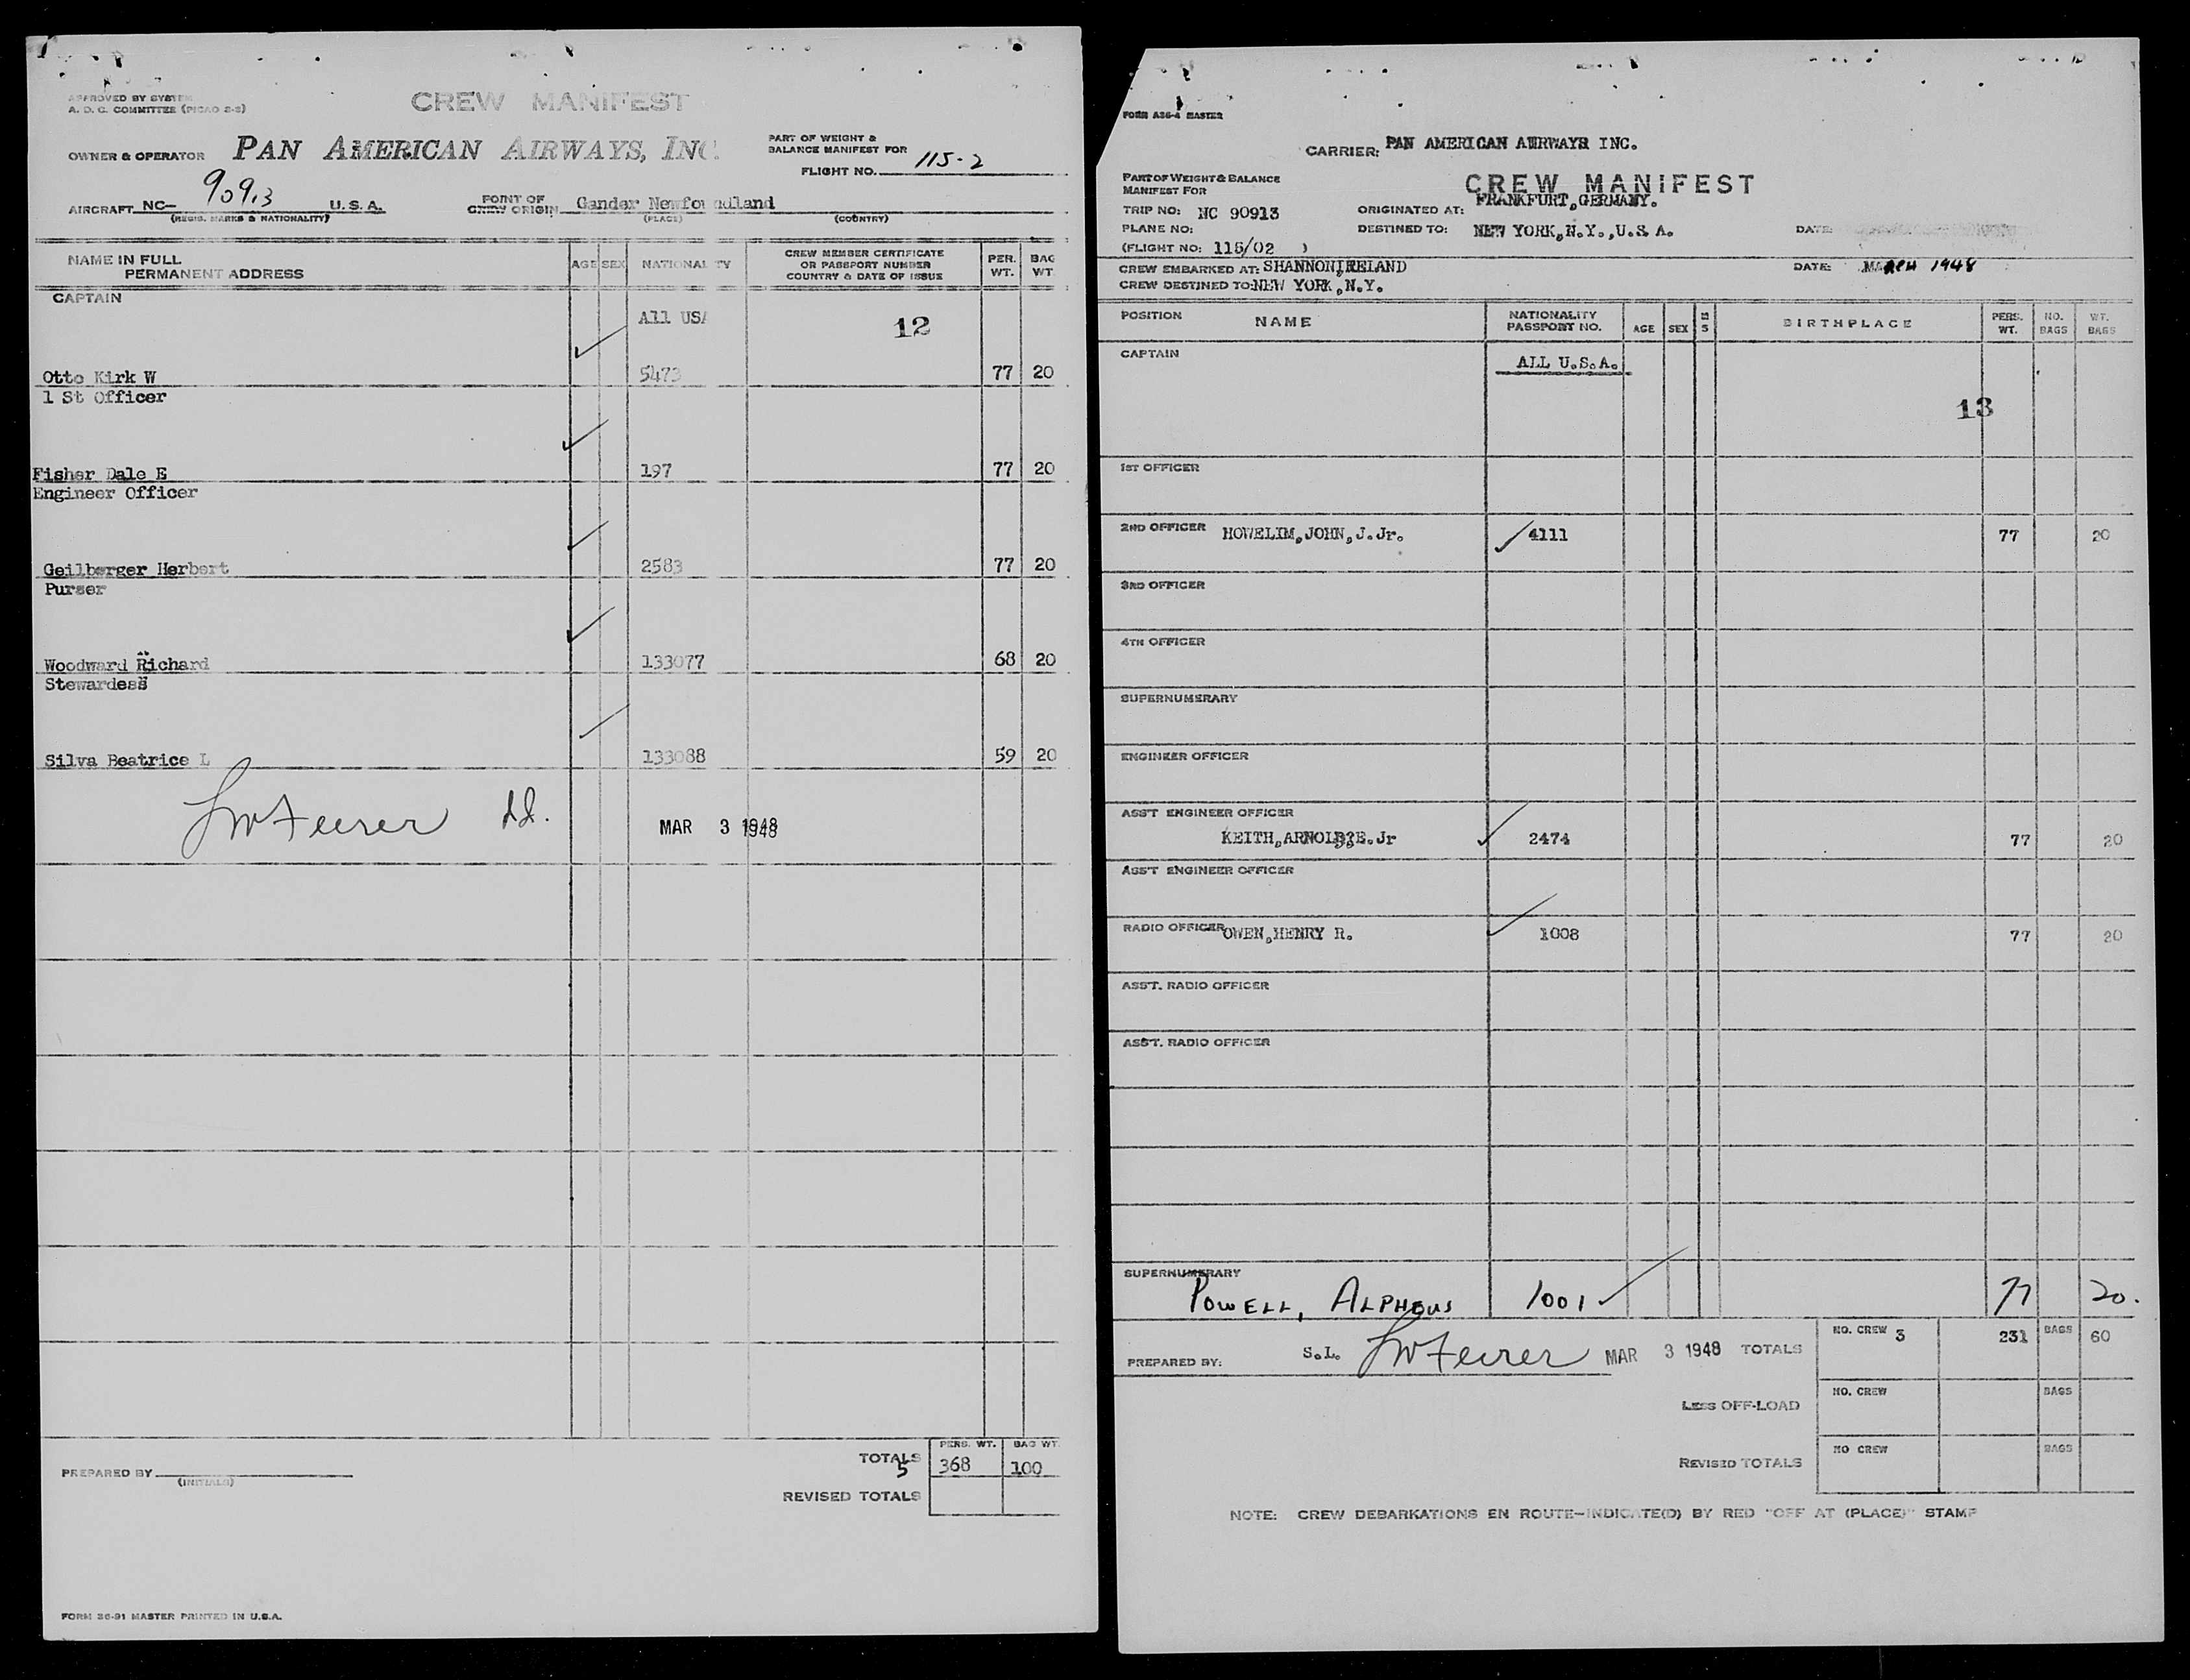 APPROVED BY SYSTEM
A. O. C. COMMITTEE (PICAO 2-3)
CREW MANIFEST
OWNER & OPERATOR PAN AMERICAN AIRWAYS, INC.
PART OF WEIGHT &
BALANCE MANIFEST FOR
FLIGHT NO. 115-2
AIRCRAFT NC- 90913 U. S. A.
(REGIS. MARKS & NATIONALITY)
POINT OF
CREW ORIGIN Gander Newfoundland
(PLACE) (COUNTRY)
NAME IN FULL
PERMANENT ADDRESS
AGE SEX NATIONALITY
CREW MEMBER CERTIFICATE
OR PASSPORT NUMBER
COUNTRY & DATE OF ISSUE
PER. WT.
BAG WT
CAPTAIN
All USA
12
Otto Kirk W 5473 77 20
1 St Officer
Fisher Dale E 197 77 20
Engineer Officer
Geilberger Herbert 2583 77 20
Purser
Woodward Richard 133077 68 20
Stewardess
Silva Beatrice L 133088 59 20
MAR 3 1948
PERS. WT. BAG WT
TOTALS 5 368 100
PREPARED BY
(INITIALS)
REVISED TOTALS
FORM 36-91 MASTER PRINTED IN U.S.A.
FORM A36-4 MASTER
CARRIER: PAN AMERICAN AIRWAYS INC.
PART OF WEIGHT & BALANCE
MANIFEST FOR
CREW MANIFEST
TRIP NO: NC 90913
ORIGINATED AT: FRANKFURT,GERMANY.
PLANE NO:
DESTINED TO: NEW YORK,N.Y.,U.S.A.
DATE:
(FLIGHT NO: 115/02 )
CREW EMBARKED AT: SHANNON,IRELAND
DATE: MARCH 1948
CREW DESTINED TO: NEW YORK,N.Y.
POSITION NAME
NATIONALITY
PASSPORT NO.
AGE SEX BIRTHPLACE
PERS. WT.
NO. BAGS
WT. BAGS
CAPTAIN
ALL U.S.A.
13
1ST OFFICER
2ND OFFICER HOWELIM,JOHN,J.Jr. 4111 77 20
3RD OFFICER
4TH OFFICER
SUPERNUMERARY
ENGINEER OFFICER
ASS'T ENGINEER OFFICER
KEITH,ARNOLD,E.Jr 2474 77 20
ASS'T ENGINEER OFFICER
RADIO OFFICER OWEN,HENRY R. 1008 77 20
ASS'T. RADIO OFFICER
ASS'T. RADIO OFFICER
SUPERNUMERARY
POWELL, ALPHEUS 1001 77 20.
PREPARED BY: S.L. MAR 3 1948 TOTALS
NO. CREW 3 231 BAGS 60
LESS OFF-LOAD
NO. CREW BAGS
REVISED TOTALS
NO CREW BAGS
NOTE: CREW DEBARKATIONS EN ROUTE-INDICATE(D) BY RED "OFF AT (PLACE)" STAMP